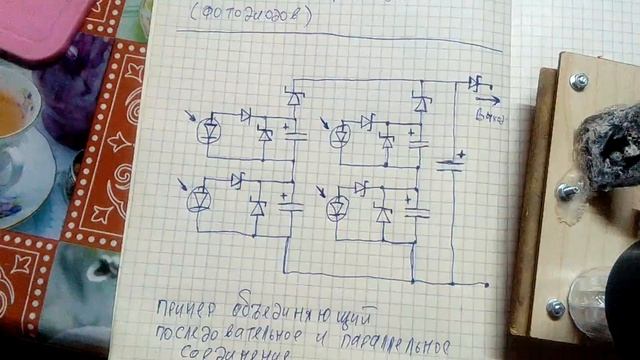 (фотодиодов)
+
+
+
Выход
+
+
пример объединяющий
последовательное и параллельное
соединение